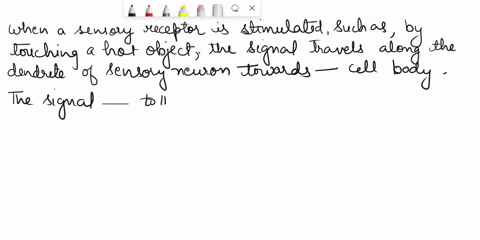 when a sensory receptor is stimulated, such as, by
touching a hot object, the signal travels along the
dendrete of sensory neuron towards — cell body.
The signal — to